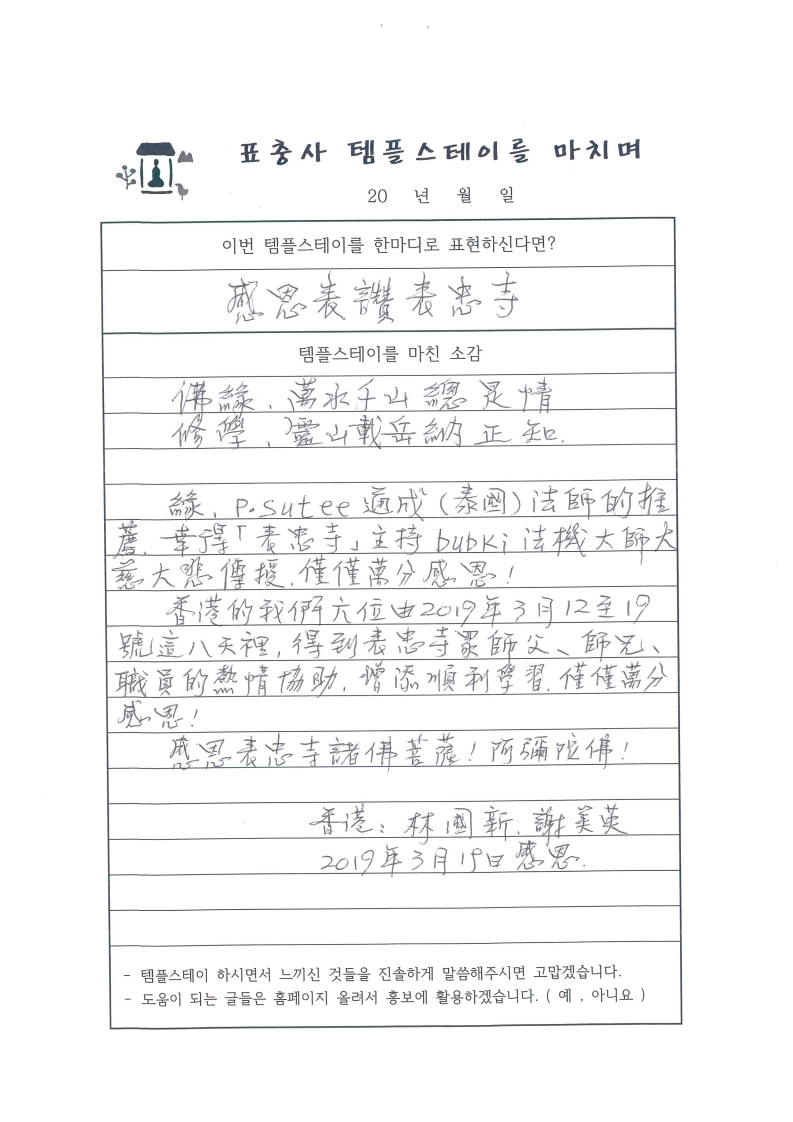 표충사 템플스테이를 마치며
20 년 월 일
이번 템플스테이를 한마디로 표현하신다면?
感恩表讚表忠寺
템플스테이를 마친 소감
佛緣，萬水千山總是情
修學，靈山載岳納正知.
緣，P.Sutee 通成（泰國）法師的推
薦，幸得「表忠寺」主持 bubki 法機大師大
慈大悲傳授，僅僅萬分感恩！
香港的我們六位由2019年3月12至19
號這八天裡，得到表忠寺眾師父、師兄、
職員的熱情協助，增添順利學習，僅僅萬分
感恩！
感恩表忠寺諸佛菩薩！阿彌陀佛！
香港：林國新，謝美英
2019年3月19日感恩.
- 템플스테이 하시면서 느끼신 것들을 진솔하게 말씀해주시면 고맙겠습니다.
- 도움이 되는 글들은 홈페이지 올려서 홍보에 활용하겠습니다. ( 예 , 아니요 )